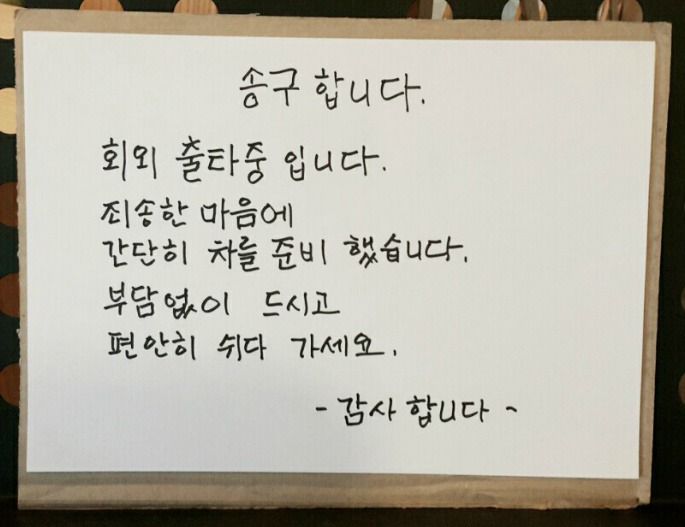 송구 합니다.
회의 출타중 입니다.
죄송한 마음에
간단히 차를 준비 했습니다.
부담없이 드시고
편안히 쉬다 가세요.
- 감사 합니다 -